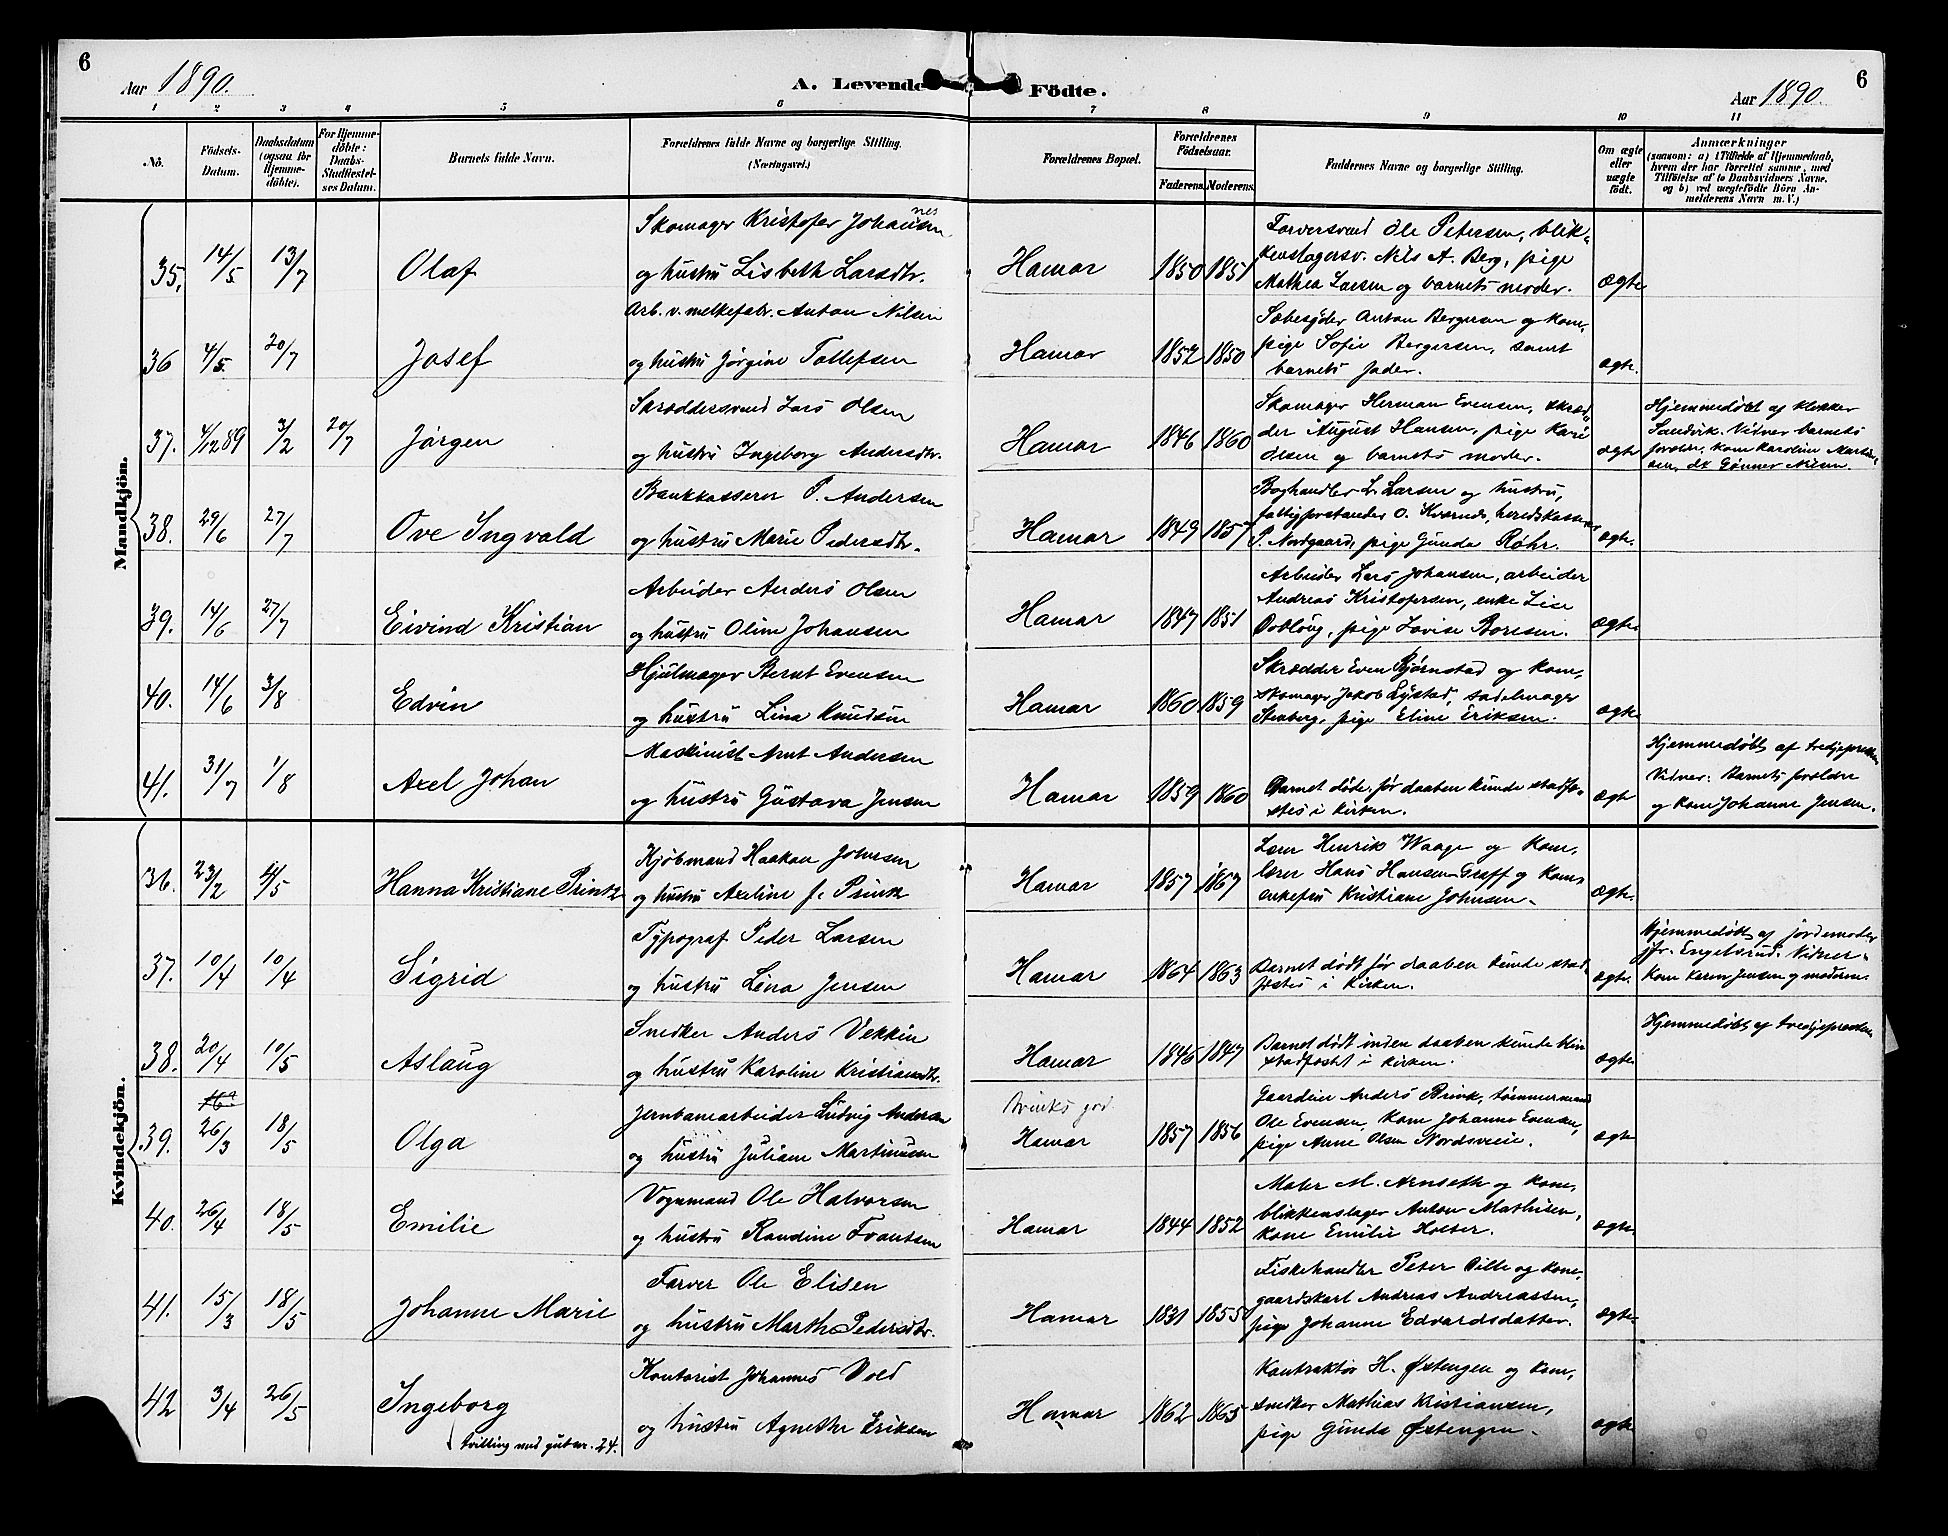 6
Aar 1890.
A. Levende Födte.
Aar 1890.
6
1 2 3 4 5 6 7 8 9 10 11
No.
Födsels-
Datum.
Daabsdatum
(ogsaa for
Hjemme-
döbte).
For Hjemme-
döbte:
Daabs-
Stadfæstel-
ses Datum.
Barnets fulde Navn.
Forældrenes fulde Navne og borgerlige Stilling.
(Næringsvei.)
Forældrenes Bopæl.
Forældrenes
Födselsaar.
Faderens. Moderens.
Faddernes Navne og borgerlige Stilling.
Om ægte
eller
uægte
födt.
Anmærkninger
(saasom: a) i Tilfælde af Hjemmedaab,
hvem der har forrettet samme, med
Tilföielse af to Daabsvidners Navne,
og b) ved uægtefödte Börn An-
melderens Navn m. V.)
Mandkjön.
35. 14/5 13/7 Olaf
Skomager Kristofer Johannesen
og hustru Lisbeth Larsdtr.
Hamar 1850 1851
Farversvend Ole Petersen, blik-
kenslagersv. Nils A. Berg, pige
Mathea Larsen og barnets moder.
ægte
36 4/5. 20/7 Josef
Arb. v. melkefabr. Anton Nilsen
og hustru Jörgine Tollefsen
Hamar 1852 1850
Sæbesyder Anton Bergersen og kone,
pige Sofie Bergersen, samt
barnets fader.
ægte.
37. 4/12 89 3/2 20/7 Jørgen
Skræddersvend Lars Olsen
og hustru Ingeborg Andersdtr.
Hamar 1846 1860
Skomager Herman Evensen, skræd-
der August Hansen, pige Kari
Olsen og barnets moder.
ægte
Hjemmedøbt af klokker
Sandvik. Vidner barnets
forældre, kone Karoline Martin-
sen, do Gunner Nilsen.
38. 29/6 27/7 Ove Ingvald
Bankkasserer P. Andersen
og hustru Marie Pedersdtr.
Hamar 1849 1857
Boghandler L. Larsen og hustru,
fattigforstander O. Kværnes, heredskasserer
P. Nordgaard, pige Gunda Rohr.
ægte.
39. 14/6 27/7 Eivind Kristian
Arbeider Anders Olsen
og hustru Oline Johansen
Hamar 1847 1851
Arbeider Lars Johansen, arbeider
Andreas Kristofersen, enke Lise
Dobloug, pige Lovise Boresen.
ægte
40. 14/6 3/8 Edvin
Hjulmager Bernt Evensen
og hustru Lina Knudsen
Hamar 1860 1859
Skrædder Even Bjørnstad og kone,
skomager Jakob Lystad, sadelmager
Stenberg, pige Eline Eriksen.
ægte
41. 31/7 1/8 Axel Johan
Maskinist Arnt Andersen
og hustru Gustava Jensen
Hamar 1859 1860
Barnet døde, før daaben kunde stadfæ-
stes i kirken.
ægte
Hjemmedøbt af tredjepresten
Vidner: Barnets forældre
og kone Johanne Jensen.
Kvindekjön.
36. 23/2 4/5 Hanna Kristiane Prink
Kjøbmand Haakon Johnsen
og hustru Axeline f. Prink
Hamar 1857 1867
Lærer Henrik Waage og kone,
lærer Hans Hansen Greff og kone
enkefru Kristiane Johnsen.
ægte.
37. 10/4 10/4 Sigrid
Typograf Peder Larsen
og hustru Lina Jensen
Hamar 1864 1863
Barnet dødt før daaben kunde stad-
fæstes i kirken.
ægte
Hjemmedøbt af jordemoder
jfr. Engelsrud. Vidner
kone Karen Jensen og moderen.
38. 20/4 10/5 Aslaug
Snedker Anders Vekkin
og hustru Karoline Kristiansdtr.
Hamar 1846 1847
Barnet dødt inden daaben kunde blive
stadfæstet i kirken.
ægte
Hjemmedøbt af tredjepresten
39. 26/3 18/5 Olga
Jernbanearbeider Ludvig Andersen
og hustru Juliane Martinusen
Brinks grd.
Hamar 1857 1856
Gaardeier Anders Brink, tømmermand
Ole Evensen, kone Johanne Evensen,
pige Anne Olsen Nordsveie.
ægte
40. 26/4 18/5 Emilie
Vognmand Ole Halvorsen
og hustru Randine Frantsen
Hamar 1844 1852
Maler M. Arnseth og kone,
blikkenslager Anton Mathisen,
kone Emilie Holter.
ægte
41. 15/3 18/5 Johanne Marie
Farver Ole Elisen
og hustru Marthe Pedersdtr.
Hamar 1831 1855
Fiskehandler Peter Pille og kone,
gaardskarl Andreas Andreassen,
pige Johanne Edvardsdatter.
ægte
42 3/4 26/5 Ingeborg
tvilling med gut nr. 24.
Kontorist Johannes Vold
og hustru Agnethe Eriksen
Hamar 1862 1865
Kontraktør H. Østengen og kone,
snedker Mathias Kristiansen,
pige Gunda Østengen.
ægte